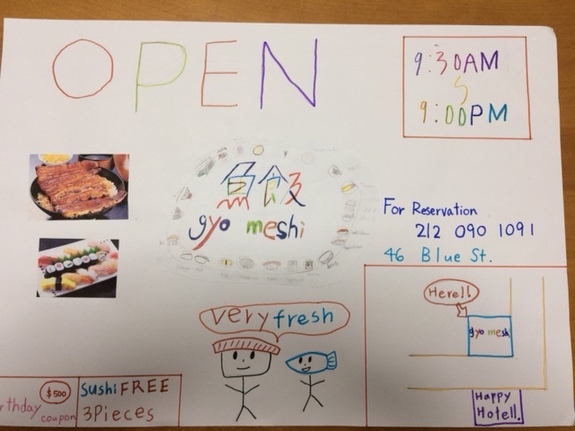 OPEN
9:30AM
9:00PM
魚飯
gyo meshi
For Reservation
212 090 1091
46 Blue St.
very fresh
Here!!
gyo mesh
Happy
Hotel!.
$500
rthday
coupon
sushi FREE
3Pieces